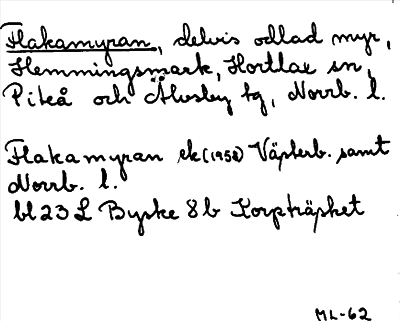 Flakamyran, delvis odlad myr,
Hemmingsmark, Hortlax sn,
Piteå och Älvsby tg, Norrb. l.
Flakamyran ek (1958) Västerb. samt
Norrb. l.
bl 23 L Byske 8b Korpträsket
ML-62